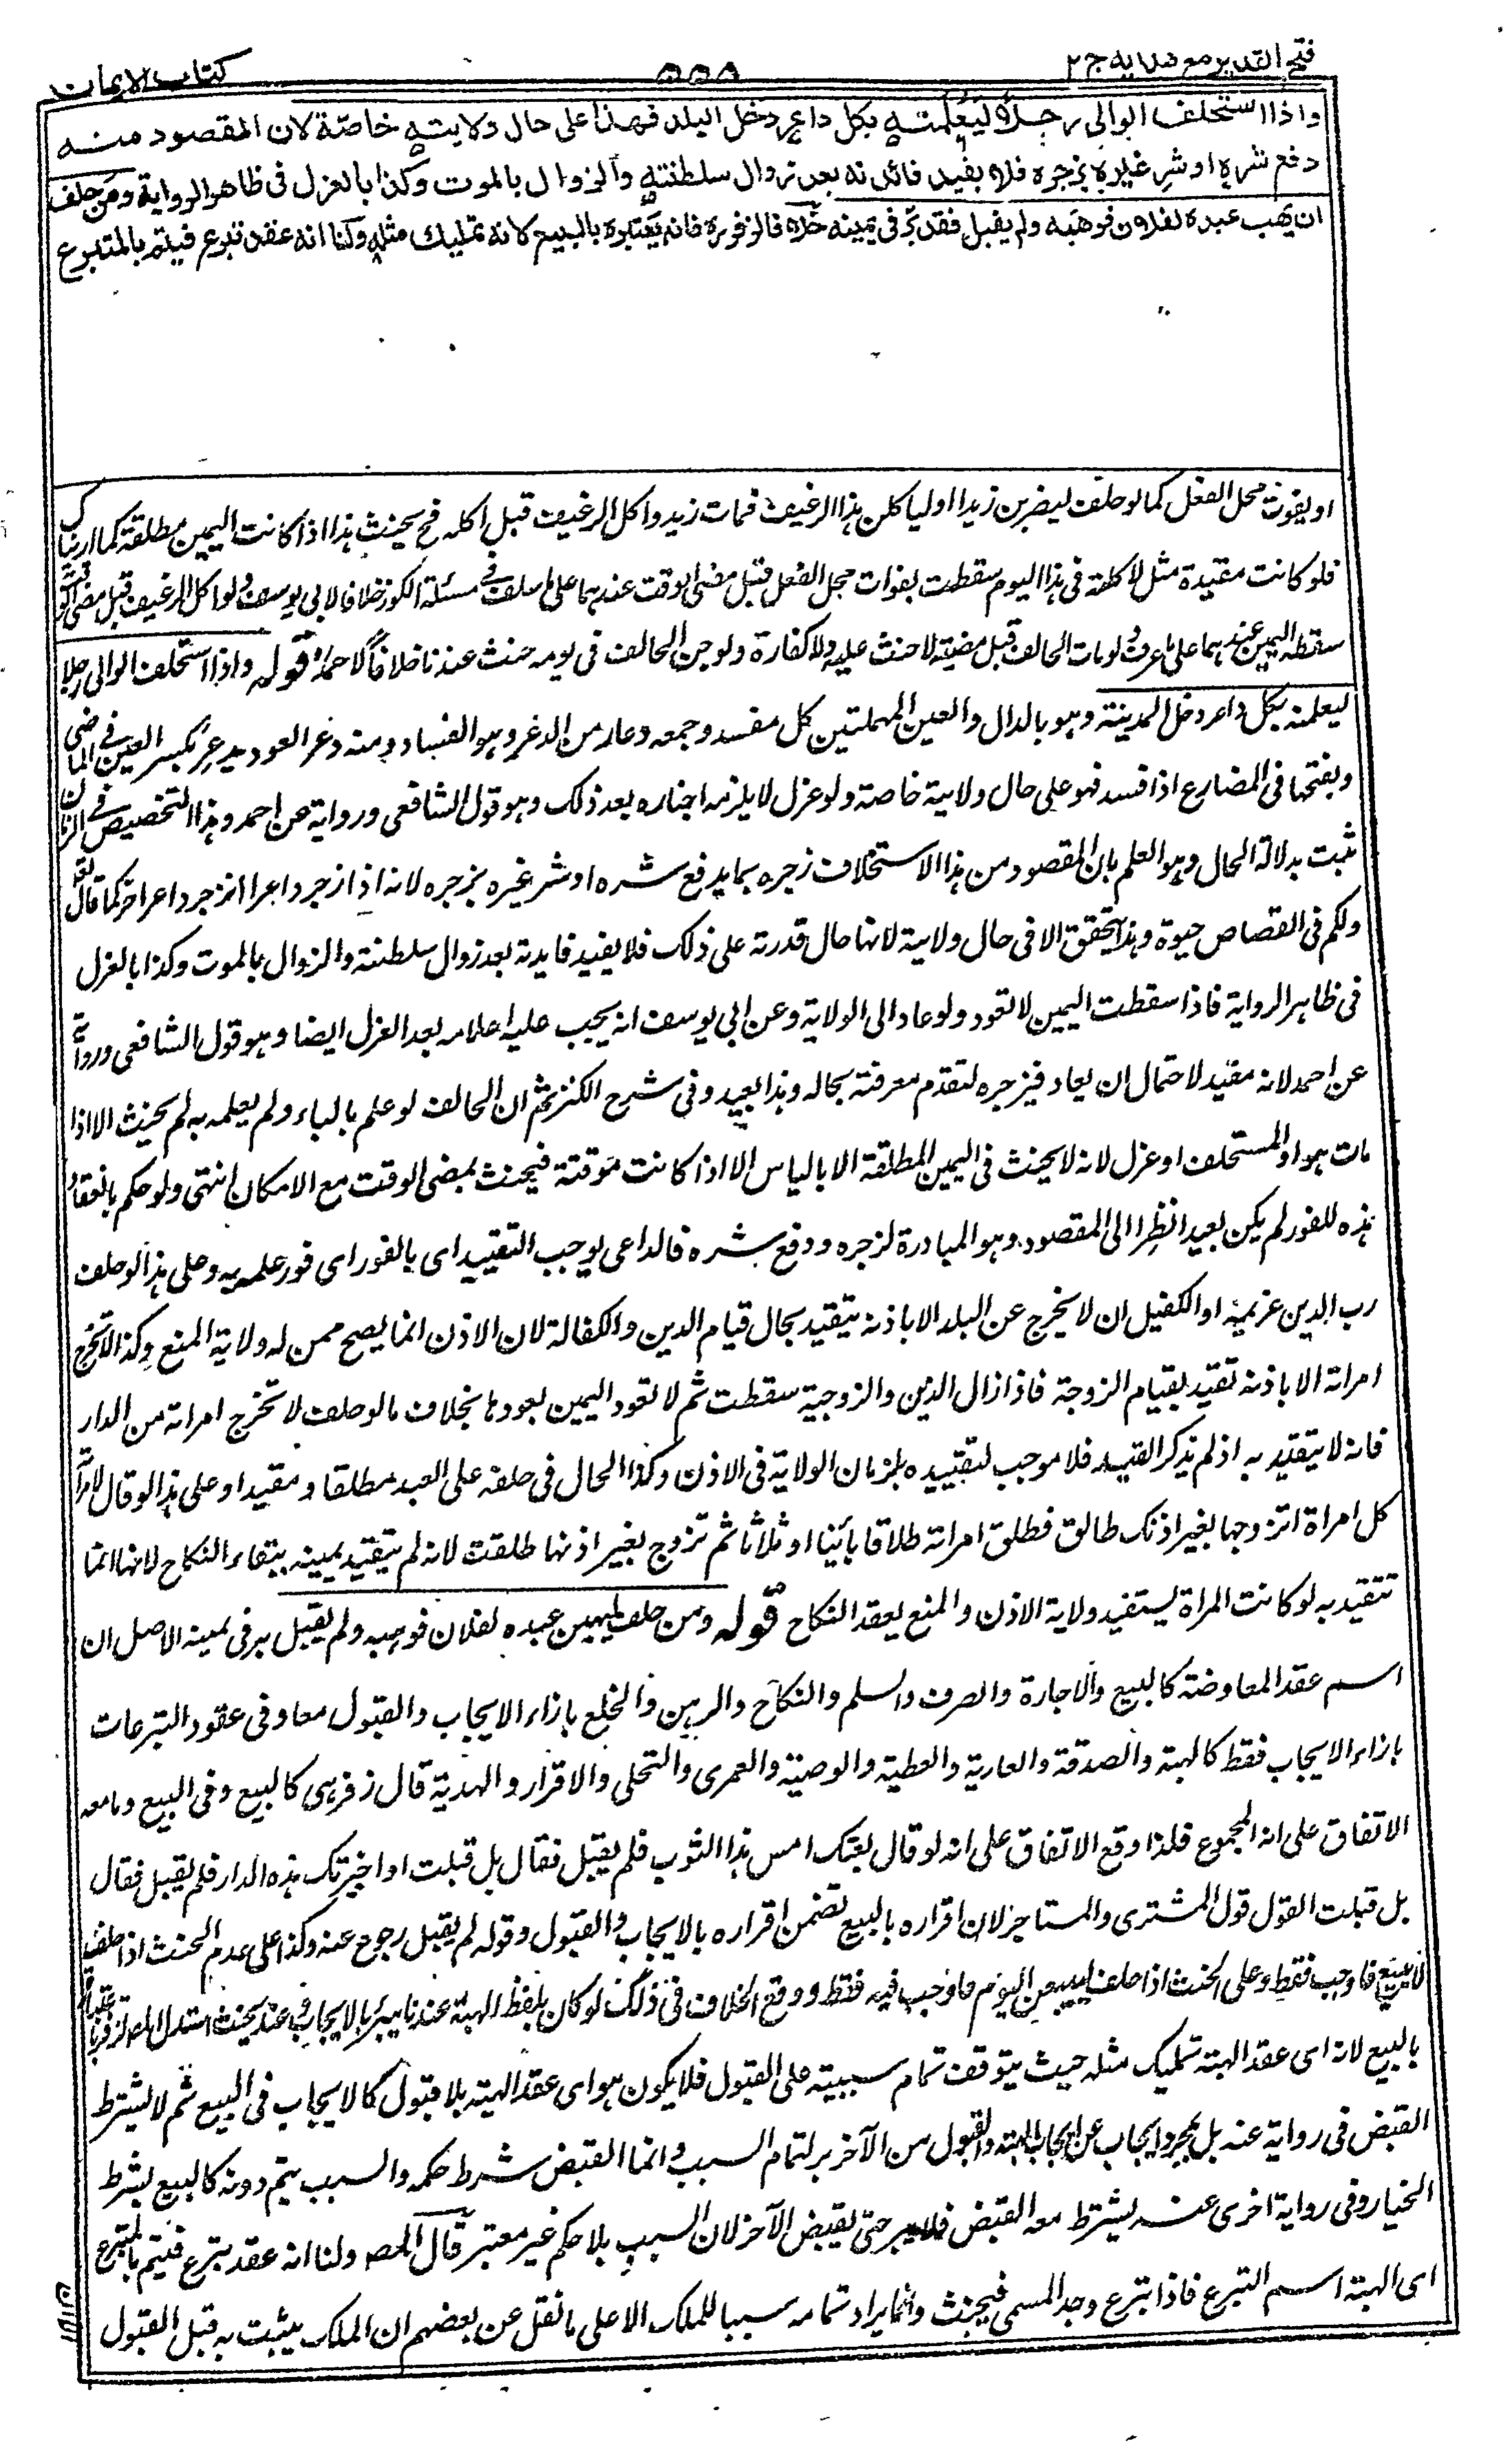 فتح القدير مع هدايه ج ٢
٥٥٨
كتاب الايمان
واذا استحلف الوالى رجلا ليعلمنه بكل داعر دخل البلد فهذا على حال ولايته خاصّة لان المقصود منه
دفع شره او شر غيره بزجره فلا يفيد فائدته بعد زوال سلطنته والزوال بالموت وكذا بالعزل فى ظاهر الرواية ومن حلف
ان يهب عبده لفلان فوهبه ولم يقبل فقد بَرّ فى يمينه خلافا لزفر فانه يعتبره بالبيع لانه تمليك مثله ولنا انه عقد تبرع فيتم بالمتبرع
او بفوت محل الفعل كما لو حلف ليضربن زيدا او لياكلن هذا الرغيف فمات زيد واكل الرغيف قبل اكله فح يحنث هذا اذا كانت اليمين مطلقة كما اريناك
فلو كانت مقيدة مثل لآكلنه فى هذا اليوم سقطت بفوات محل الفعل قبل مضى الوقت عندهما على ما سلف فى مسئلة الكوز خلافا لابى يوسف ولو اكل الرغيف قبل مضى
سقط اليمين عندهما على ما عرف ولو مات الحالف قبل مضيته لا حنث عليه ولا كفارة ولو جن الحالف فى يومه حنث عندنا خلافا لاحمد قوله واذا استحلف الوالى رجلا
ليعلمنه بكل داعر دخل المدينة وهو بالدال والعين المهملتين كل مفسد وجمعه دعار من الدعر وهو الفساد ومنه دعر العود يدعر بكسر العين فى الماضى
وبفتحها فى المضارع اذا فسد فهو على حال ولايته خاصة ولو عزل لا يلزمه اخباره بعد ذلك وهو قول الشافعى ورواية عن احمد وهذا التخصيص فى الزمان
ثبت بدلالة الحال وهو العلم بان المقصود من هذا الاستحلاف زجره بما يدفع شره او شر غيره بزجره لانه اذا زجر داعرا انزجر داعر اخر كما قال تعالى
ولكم فى القصاص حيوة وهذا يتحقق الا فى حال ولايته لانها حال قدرته على ذلك فلا يفيد فايدته بعد زوال سلطنته والزوال بالموت وكذا بالعزل
فى ظاهر الرواية فاذا سقطت اليمين لا تعود ولو عاد الى الولاية وعن ابى يوسف انه يجب عليه اعلامه بعد العزل ايضا وهو قول الشافعى ورواية
عن احمد لانه مفيد لاحتمال ان يعاد فيزجره لتقدم معرفته بحاله وهذا بعيد وفى شرح الكنز ثم ان الحالف لو علم بالباء ولم يعلمه به لم يحنث الا اذا
مات هو او المستحلف او عزل لانه لا يحنث فى اليمين المطلقة الا بالياس الا اذا كانت موقتة فيحنث بمضى الوقت مع الامكان انتهى ولو حكم بانعقاد
هذه للفور لم يكن بعيدا نظرا الى المقصود وهو المبادرة لزجره ودفع شره فالداعى يوجب التقييد اى بالفور اى فور علمه به وعلى هذا لو حلف
رب الدين غريمه او الكفيل ان لا يخرج عن البلد الا باذنه يتقيد بحال قيام الدين والكفالة لان الاذن انما يصح ممن له ولاية المنع وكذا لا تخرج
امراته الا باذنه تقيد بقيام الزوجة فاذا زال الدين والزوجية سقطت ثم لا تعود اليمين بعودها بخلاف ما لو حلف لا تخرج امراته من الدار
فانه لا يتقيد به اذ لم يذكر القيد فلا موجب لتقييده بزمان الولاية فى الاذن وكذا الحال فى حلفه على العبد مطلقا ومقيدا وعلى هذا لو قال لامرأته
كل امراة اتزوجها بغير اذنك طالق فطلق امراته طلاقا بائنا او ثلاثا ثم تزوج بغير اذنها طلقت لانه لم يتقيد يمينه ببقاء النكاح لانها انما
تتقيد به لو كانت المراة يستفيد ولاية الاذن والمنع بعقد النكاح قوله ومن حلف ليهبن عبده لفلان فوهبه ولم يقبل بر فى يمينه الاصل ان
اسم عقد المعاوضة كالبيع والاجارة والصرف والسلم والنكاح والرهن والخلع بازاء الايجاب والقبول معا وفى عقود التبرعات
بازاء الايجاب فقط كالهبة والصدقة والعارية والعطية والوصية والعمرى والنحلى والاقرار والهدية قال زفر هى كالبيع وفى البيع وما معه
الاتفاق على انه المجموع فلذا وقع الاتفاق على انه لو قال بعتك امس هذا الثوب فلم يقبل فقال بل قبلت او اجرتك هذه الدار فلم يقبل فقال
بل قبلت القول قول المشترى والمستاجر لان اقراره بالبيع تضمن اقراره بالايجاب والقبول وقوله لم يقبل رجوع عنه وكذا على عدم الحنث اذا حلف
لا يبيع فاوجب فقط وعلى الحنث اذا حلف ليبيعن اليوم فاوجب فيه فقط ووقع الخلاف فى ذلك لو كان بلفظ الهبة عندنا يبر بالايجاب وعنده يحنث استدل المص لزفر
بالبيع لانه اى عقد الهبة تمليك مثله حيث يتوقف تمام سببيته على القبول فلا يكون هو اى عقد الهبة بلا قبول كالايجاب فى البيع ثم لا يشترط
القبض فى رواية عنه بل بمجرد ايجاب عن ايجاب الهبة والقبول من الآخر بر لتمام السبب وانما القبض شرط حكمه والسبب يتم دونه كالبيع بشرط
الخيار وفى رواية اخرى عنه يشترط معه القبض فلا يبر حتى يقبض الآخر لان السبب بلا حكم غير معتبر قال المصـ ولنا انه عقد تبرع فيتم بالمتبرع
اى الهبة اسم التبرع فاذا تبرع وجد المسمى فيحنث وانما يراد تمامه سببا للملك الا على ما نقل عن بعضهم ان الملك يثبت به قبل القبول